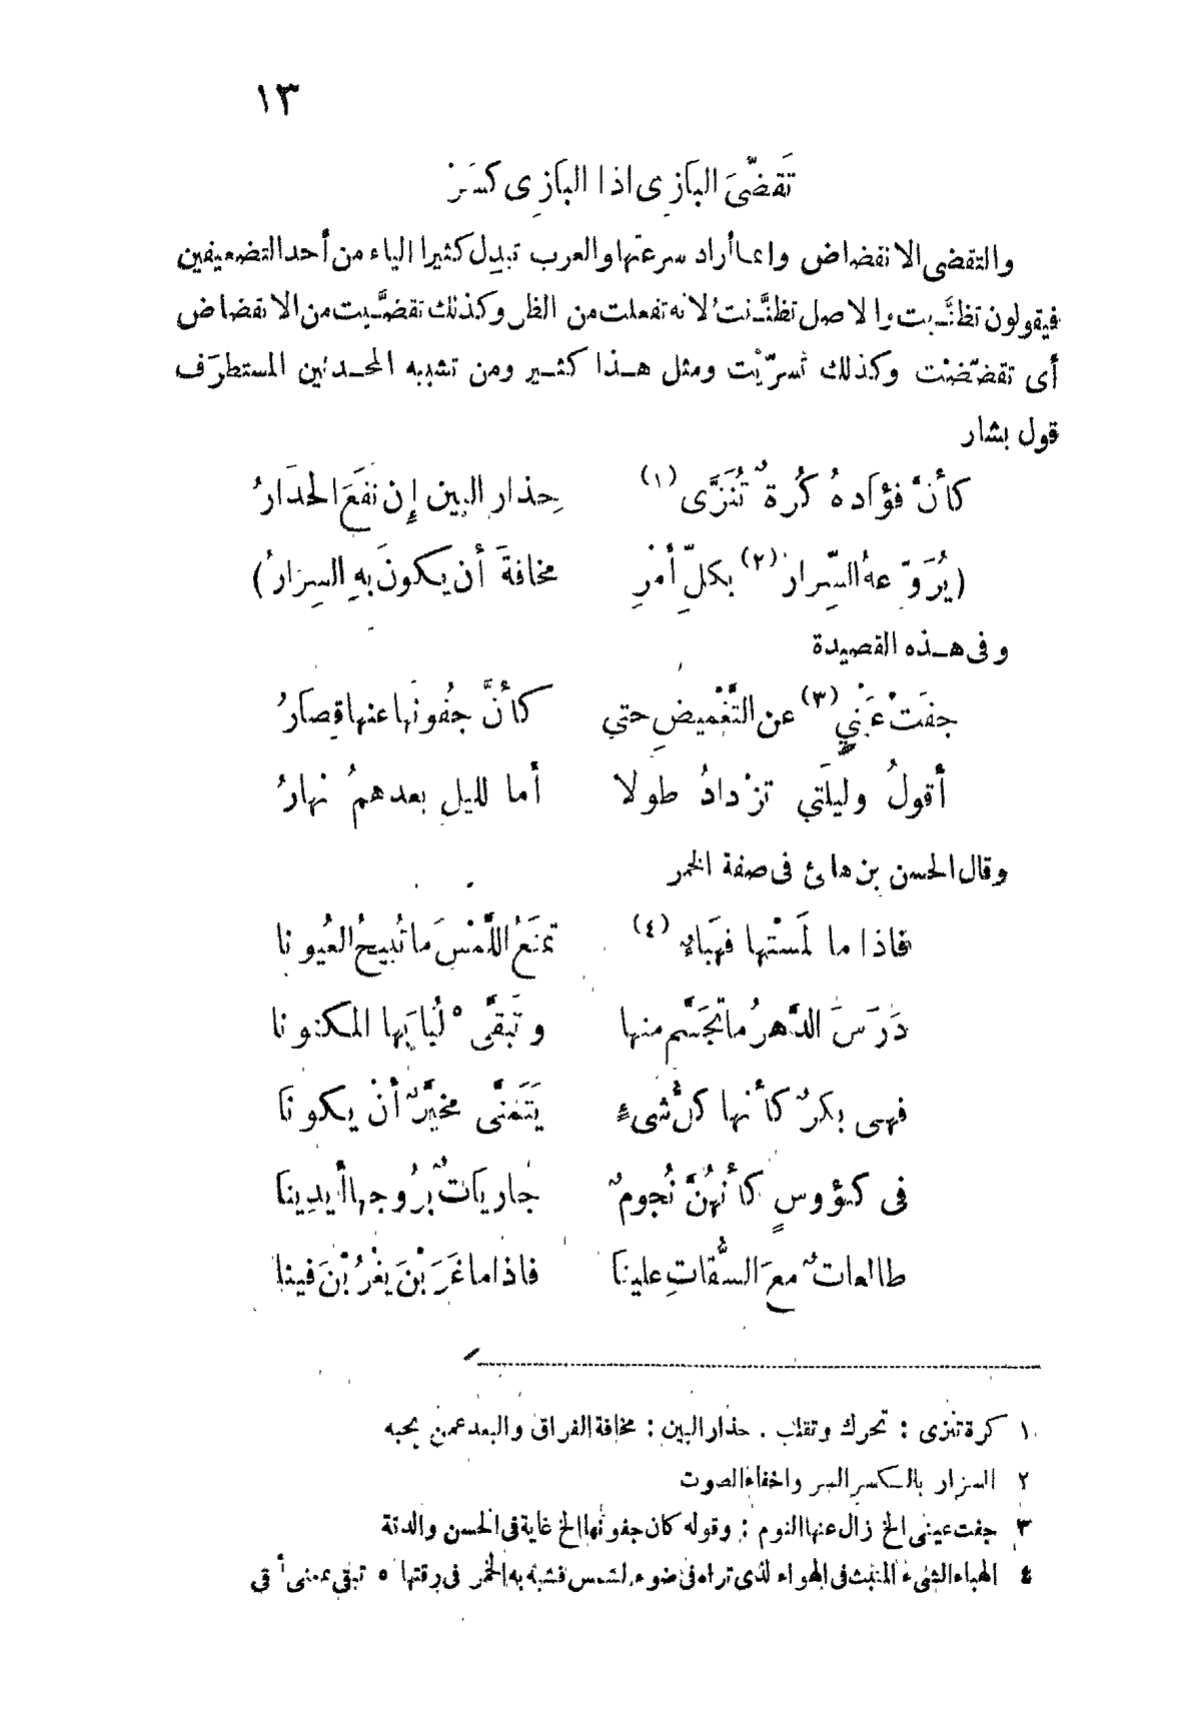 ١٣
تَقضِّىَ البَازِى اذا البَازِى كسَرْ
والتقضى الانقضاض وانما أراد سرعتها والعرب تبدل كثيرا الياء من أحد التضعيفين
فيقولون تظنَّيت والاصل تظنَّنتُ لانه تفعلت من الظن وكذلك تقضَّيت من الانقضاض
أى تقضّضْت وكذلك تسرّيْت ومثل هذا كثير ومن تشبيه المحدثين المستطرَف
قول بشار
كأنَّ فؤَادهُ كُرةٌ تُنَزَّى (١) حِذار البين إِن نفَعَ الحذَارُ
(يُرَوِّعهُ السِّرارُ (٢) بكلِّ أمْرٍ مخافةَ أن يكونَ بهِ السِرَارُ)
وفى هذه القصيدة
جفَتْ عَيْنِي (٣) عن التَّغْميضِ حتي كأنَّ جُفُونَها عنها قِصَارُ
أقولُ وليلَتي تزْدادُ طولا أما لليلِ بعدهمُ نهارُ
وقال الحسن بن هانئ فى صفة الخمر
فاذا ما لَمَسْتها فهَباءٌ (٤) تمنَعُ اللَّمْسَ ما تُبيحُ العُيونا
دَرَسَ الدَّهرُ ما تَجَسَّم منها وتَبَقَّى ٥ لُبابَها المكنونا
فهى بكرٌ كأنها كلُّ شىءٍ يَتَمَنَّى مخيَّرٌ أنْ يكونَا
فى كؤوسٍ كأنهُنَّ نُجومٌ جاريَاتٌ بُرُوجها أيدِينا
طالعاتٌ معَ السُّقاتِ علينَا فاذا ما غَرَبْنَ يغْرُبْنَ فينا
١ كرة تنزى : تحرك وتقلب . حذار البين : مخافة الفراق والبعد عمن يحبه
٢ السرار بالكسر السر واخفاء الصوت
٣ جفت عينى الخ زال عنها النوم : وقوله كان جفونها الخ غاية فى الحسن والدقة
٤ الهباء الشىء المنبث فى الهواء لذى تراه فى ضوء الشمس فشبه به الخمر فى رقتها ٥ تبقى بمعنى أبقى